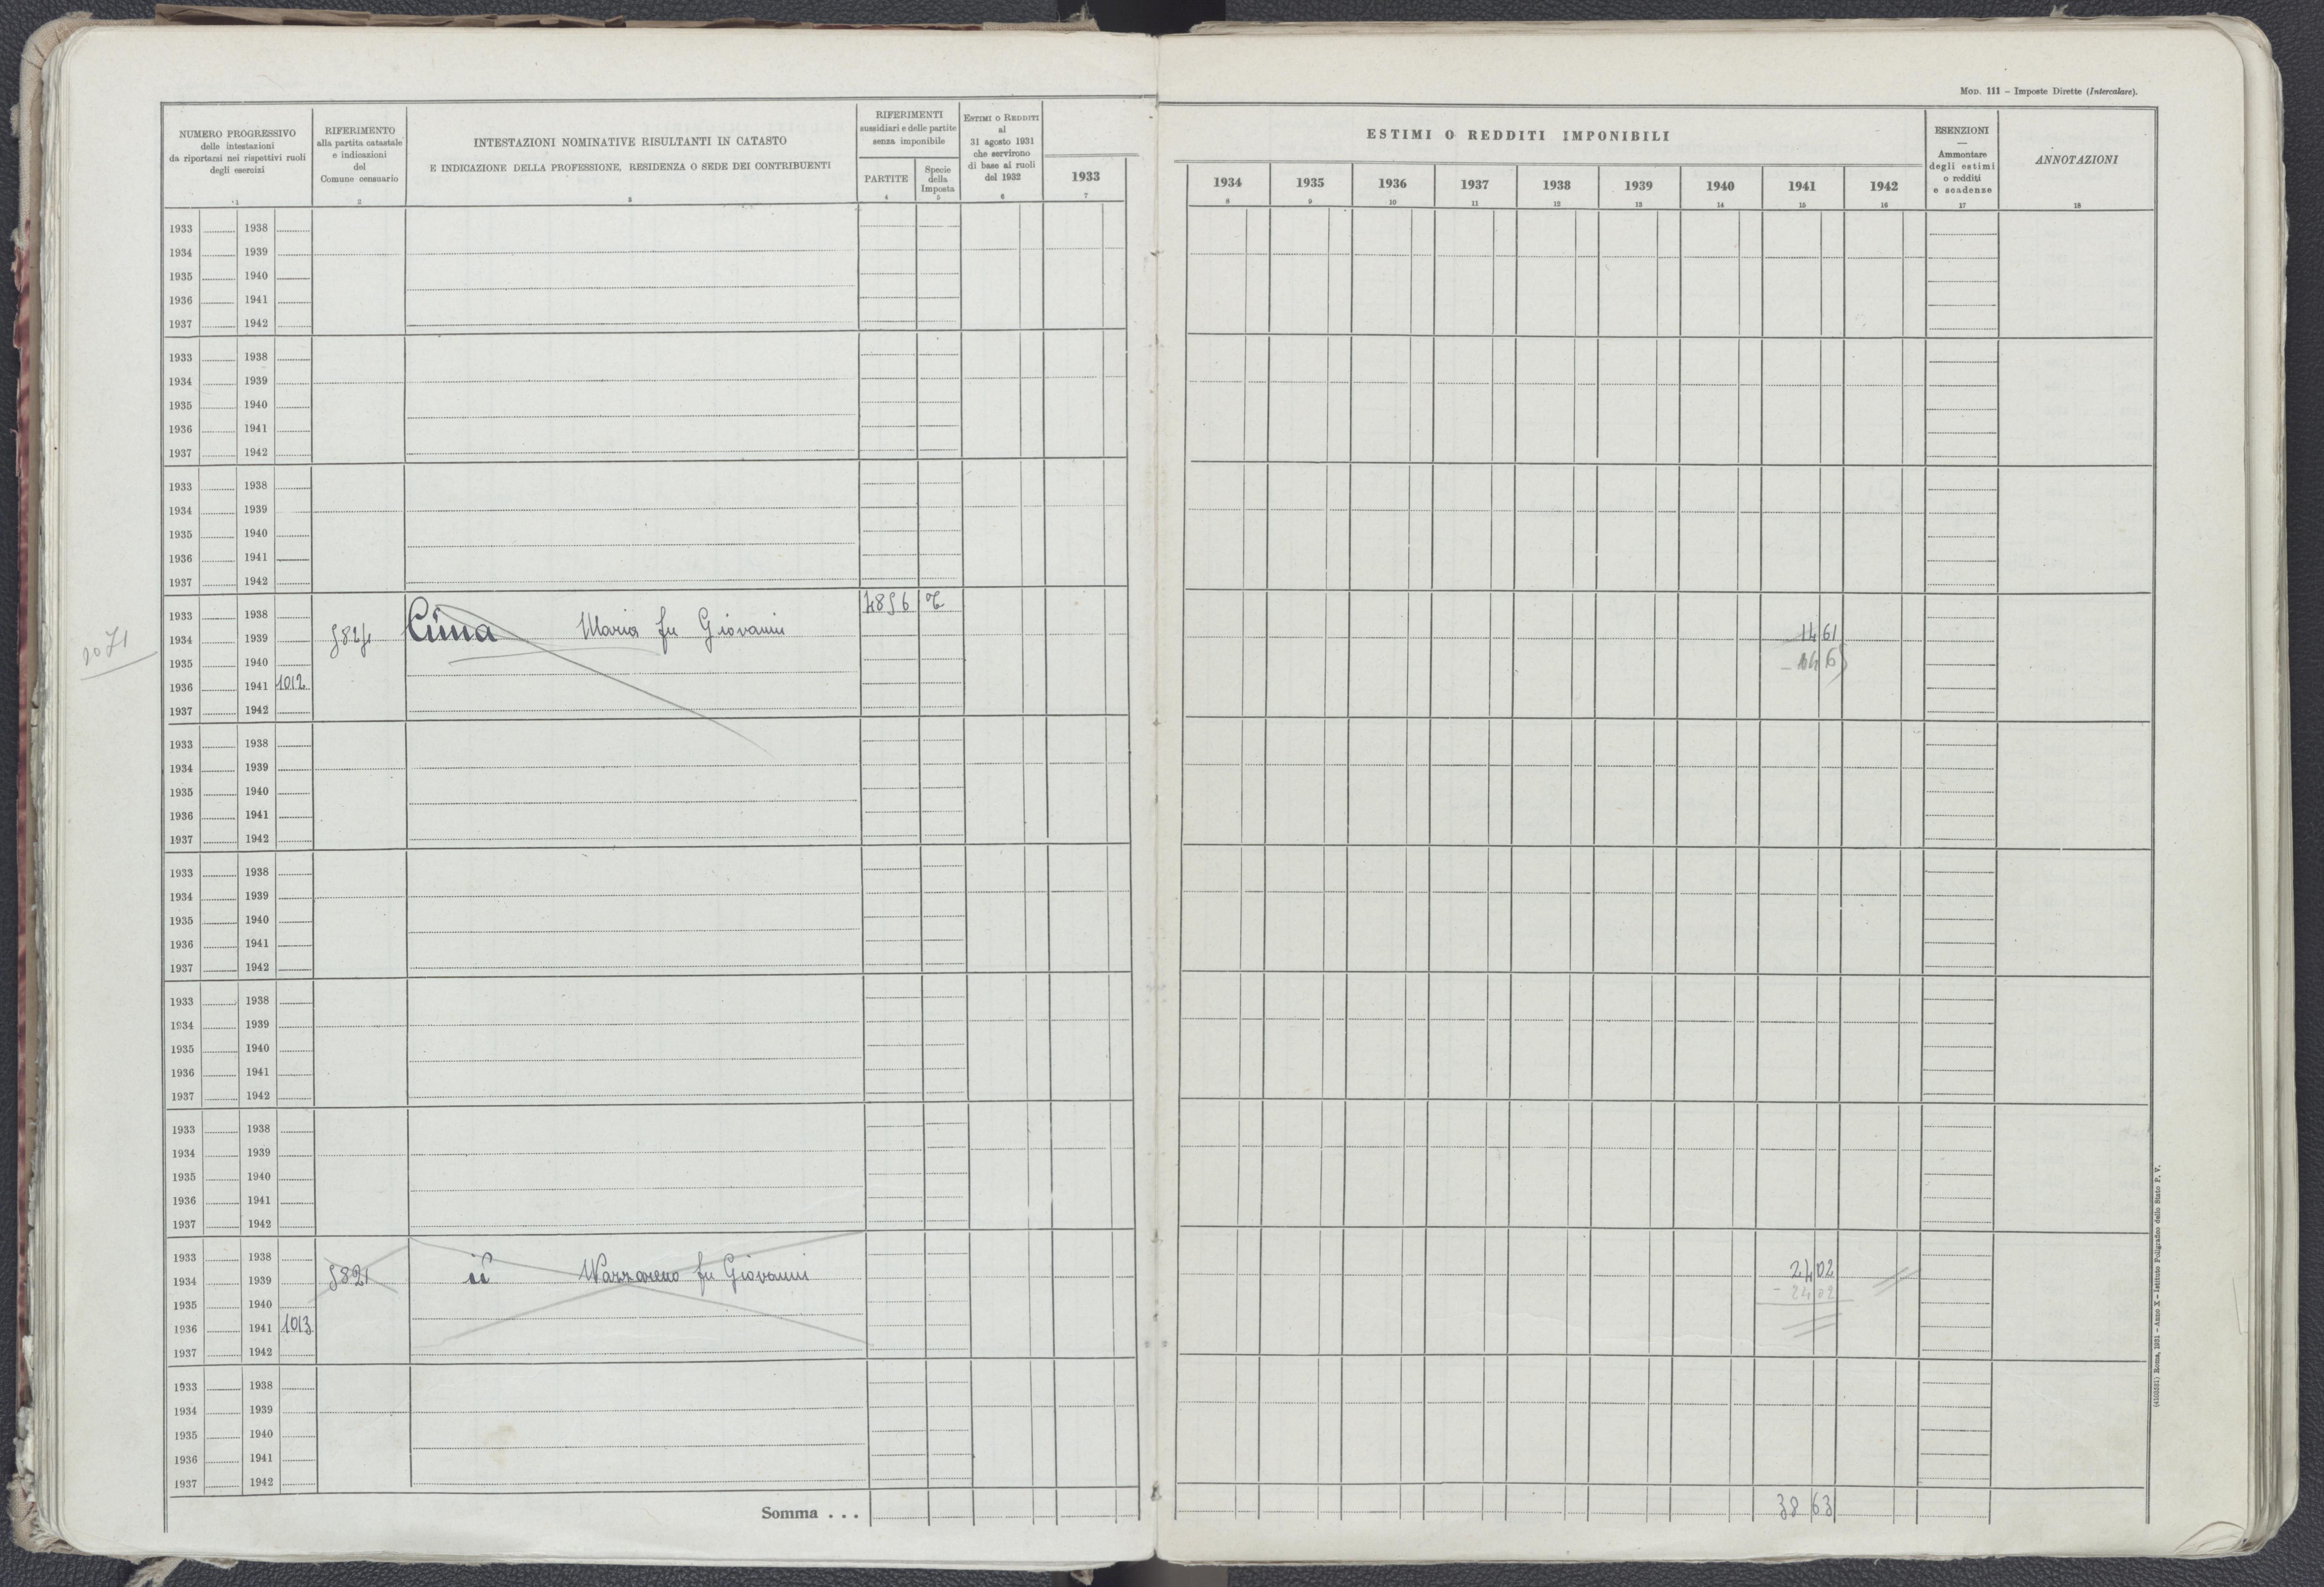 MOD. 111 – Imposte Dirette (Intercalare).
NUMERO PROGRESSIVO
delle intestazioni
da riportarsi nei rispettivi ruoli
degli esercizi
1
RIFERIMENTO
alla partita catastale
e indicazioni
del
Comune censuario
2
INTESTAZIONI NOMINATIVE RISULTANTI IN CATASTO
E INDICAZIONE DELLA PROFESSIONE, RESIDENZA O SEDE DEI CONTRIBUENTI
3
RIFERIMENTI
sussidiari e delle partite
senza imponibile
PARTITE
4
Specie
della
Imposta
5
ESTIMI O REDDITI
al
31 agosto 1931
che servirono
di base ai ruoli
del 1932
6
1933
7
ESTIMI O REDDITI IMPONIBILI
1934 1935 1936 1937 1938 1939 1940 1941 1942
8 9 10 11 12 13 14 15 16
ESENZIONI
—
Ammontare
degli estimi
o redditi
e scadenze
17
ANNOTAZIONI
18
1933 1938
1934 1939
1935 1940
1936 1941
1937 1942
1933 1938
1934 1939
1935 1940
1936 1941
1937 1942
1933 1938
1934 1939
1935 1940
1936 1941
1937 1942
1933 1938 4856
1934 1939 5824 Cima Maria fu Giovanni 14 61
1935 1940
1936 1941 1012
1937 1942
1933 1938
1934 1939
1935 1940
1936 1941
1937 1942
1933 1938
1934 1939
1935 1940
1936 1941
1937 1942
1933 1938
1934 1939
1935 1940
1936 1941
1937 1942
1933 1938
1934 1939
1935 1940
1936 1941
1937 1942
1933 1938
1934 1939 5821 ii Nazzareno fu Giovanni 24 02
1935 1940 - 24 02
1936 1941 1013
1937 1942
1933 1938
1934 1939
1935 1940
1936 1941
1937 1942
Somma . . . 38 63
(4103531) Roma, 1931 – Anno X – Istituto Poligrafico dello Stato P. V.